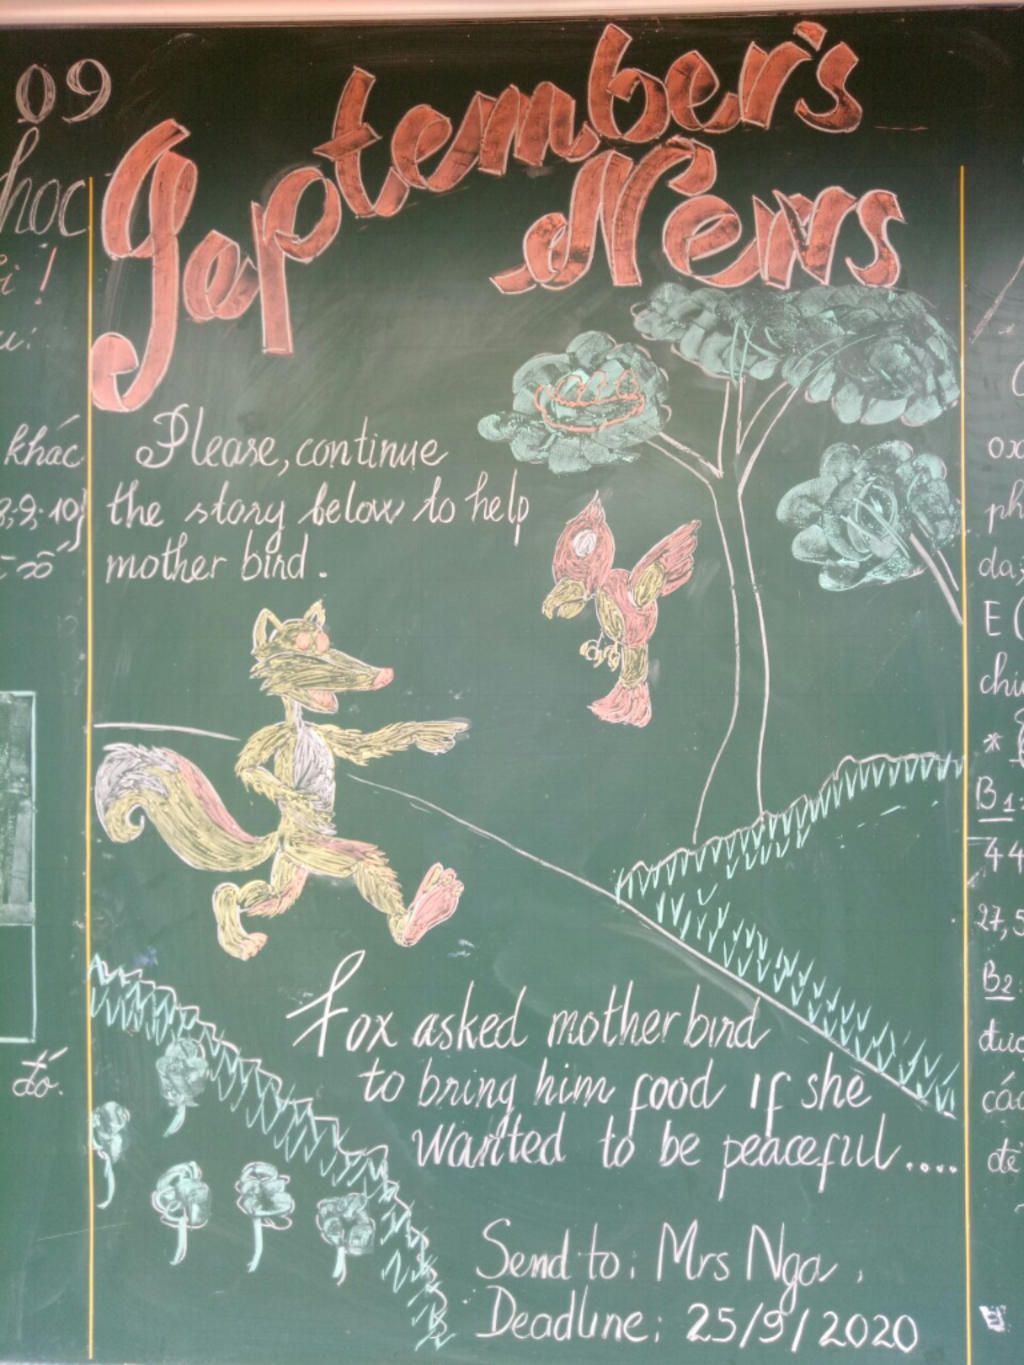 09
học
!
khác
8,9,10)
đó.
September's
News
Please, continue
the story below to help
mother bird.
Fox asked mother bird
to bring him food if she
wanted to be peaceful....
Send to: Mrs Nga,
Deadline: 25/9/2020
ph
E (
*
B1
44
27,5
B2:
các